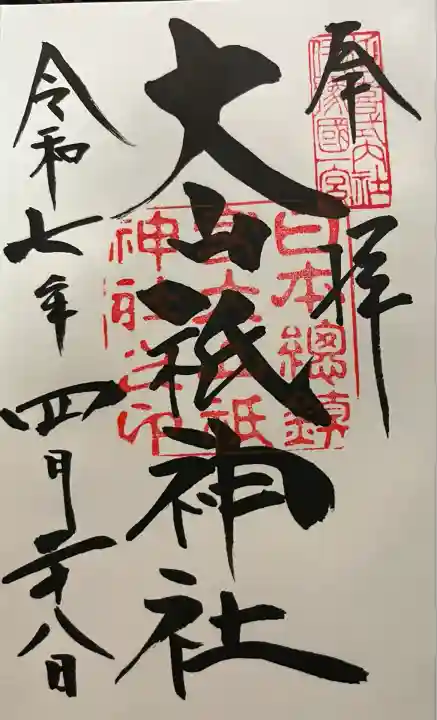 奉拝
延喜式内社
伊豫國一宮
大山祇神社
日本總鎮
守大山祇
神社之印
令和七年四月二十八日